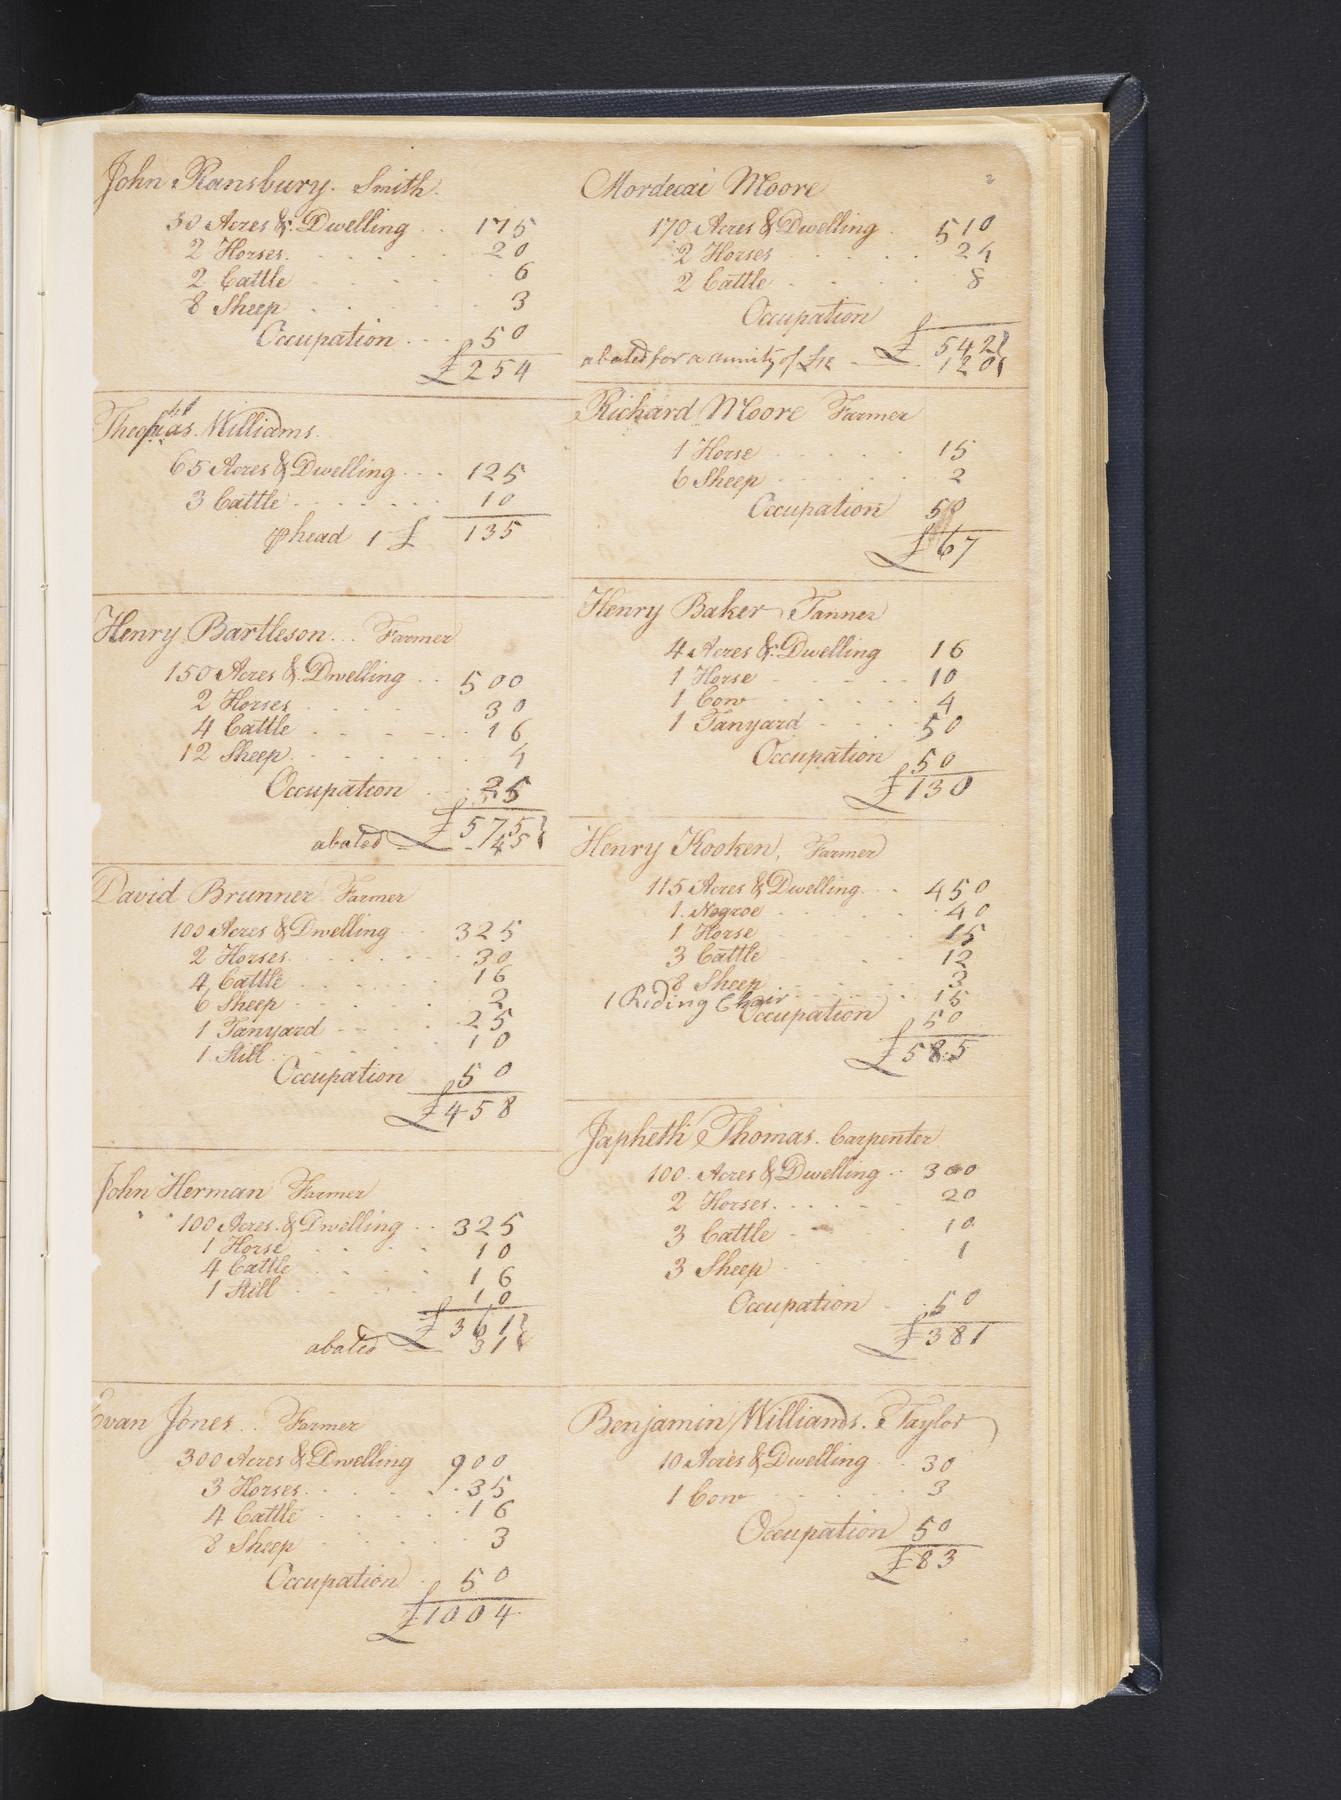 John Ransbury. Smith.
50 Acres & Dwelling . . 175
2 Horses. . . . . . 20
2 Cattle . . . . 6
8 Sheep . . . . 3
Occupation . . . 50
£ 254
Williams.
65 Acres & Dwelling . . . 125
3 Cattle . . . . . . 10
⅌ head 1 £ 135
Henry Bartleson . . . Farmer
150 Acres & Dwelling . . 500
2 Horses . . . . 30
4 Cattle . . . . . . 16
12 Sheep . . . . . . 4
Occupation . . 25
£ 575
abated £ 45
David Brunner Farmer
100 Acres & Dwelling . . 325
2 Horses . . . . . . 30
4 Cattle . . . . . 16
6 Sheep . . . . 2
1 Tanyard . . . . . 25
1 Still . . . . . 10
Occupation 50
£ 458
John Herman Farmer
100 Acres & Dwelling . . 325
1 Horse . . . . 10
4 Cattle . . . . 16
1 Still . . . . 10
£ 361
abated 31
Evan Jones . . Farmer
300 Acres & Dwelling 900
3 Horses . . . . . . 35
4 Cattle . . . . . . 16
8 Sheep . . . . 3
Occupation . 50
£ 1004
Mordecai Moore
170 Acres & Dwelling . 510
2 Horses . . . . 24
2 Cattle . . . . 8
Occupation
£ 542
abated for a annuity of £12 120
Richard Moore Farmer
1 Horse . . . . . 15
6 Sheep . . . . . 2
Occupation 50
£ 67
Henry Baker Tanner
4 Acres & Dwelling 16
1 Horse . . . . . 10
1 Cow . . . . . 4
1 Tanyard . . . . 50
Occupation 50
£ 130
Henry Kooken, Farmer
115 Acres & Dwelling . . . 450
1 Negroe . . . . . 40
1 Horse . . . . . 15
3 Cattle . . . . 12
8 Sheep . . . . 3
1 Riding Chair . . . . . 15
Occupation 50
£ 585
Japheth Thomas. Carpenter
100 Acres & Dwelling . . 300
2 Horses. . . . . . 20
3 Cattle . . . 10
3 Sheep . . . 1
Occupation . . 50
£ 381
Benjamin Williams. Taylor
10 Acres & Dwelling . . 30
1 Cow . . . . . . 3
Occupation 50
£ 83